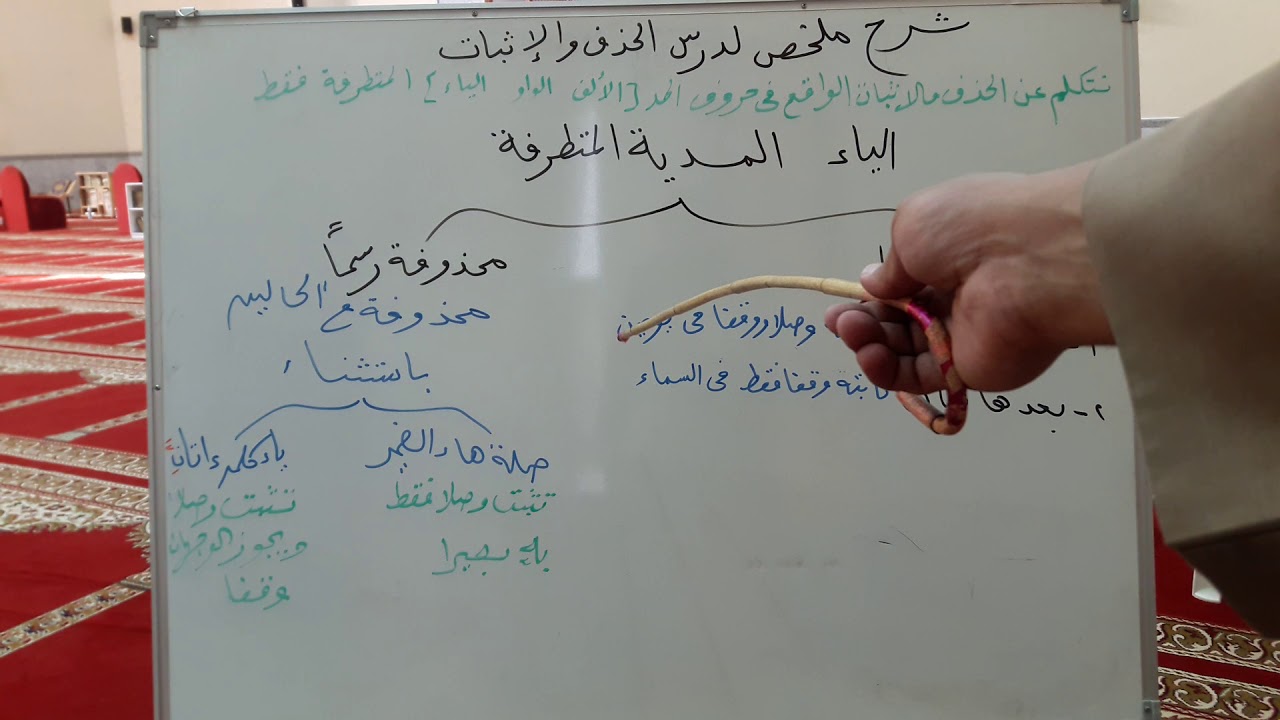 شرح ملخص لدرس الحذف والإثبات
نتكلم عن الحذف والإثبات الواقع في حروف المد [الألف الواو الياء] المتطرفة فقط
الياء المدية المتطرفة
محذوفة رسماً
وصلا ووقفا في
محذوفة مع الحالين
٢- بعدها
ثابتة وقفا فقط في السماء
باستثناء
صلة هاء الضمير
تثبت وصلا فقط
بهِ بصيرا
ياء كلمة ءاتانِ
تثبت وصلا
ويجوز الوجهان
وقفا